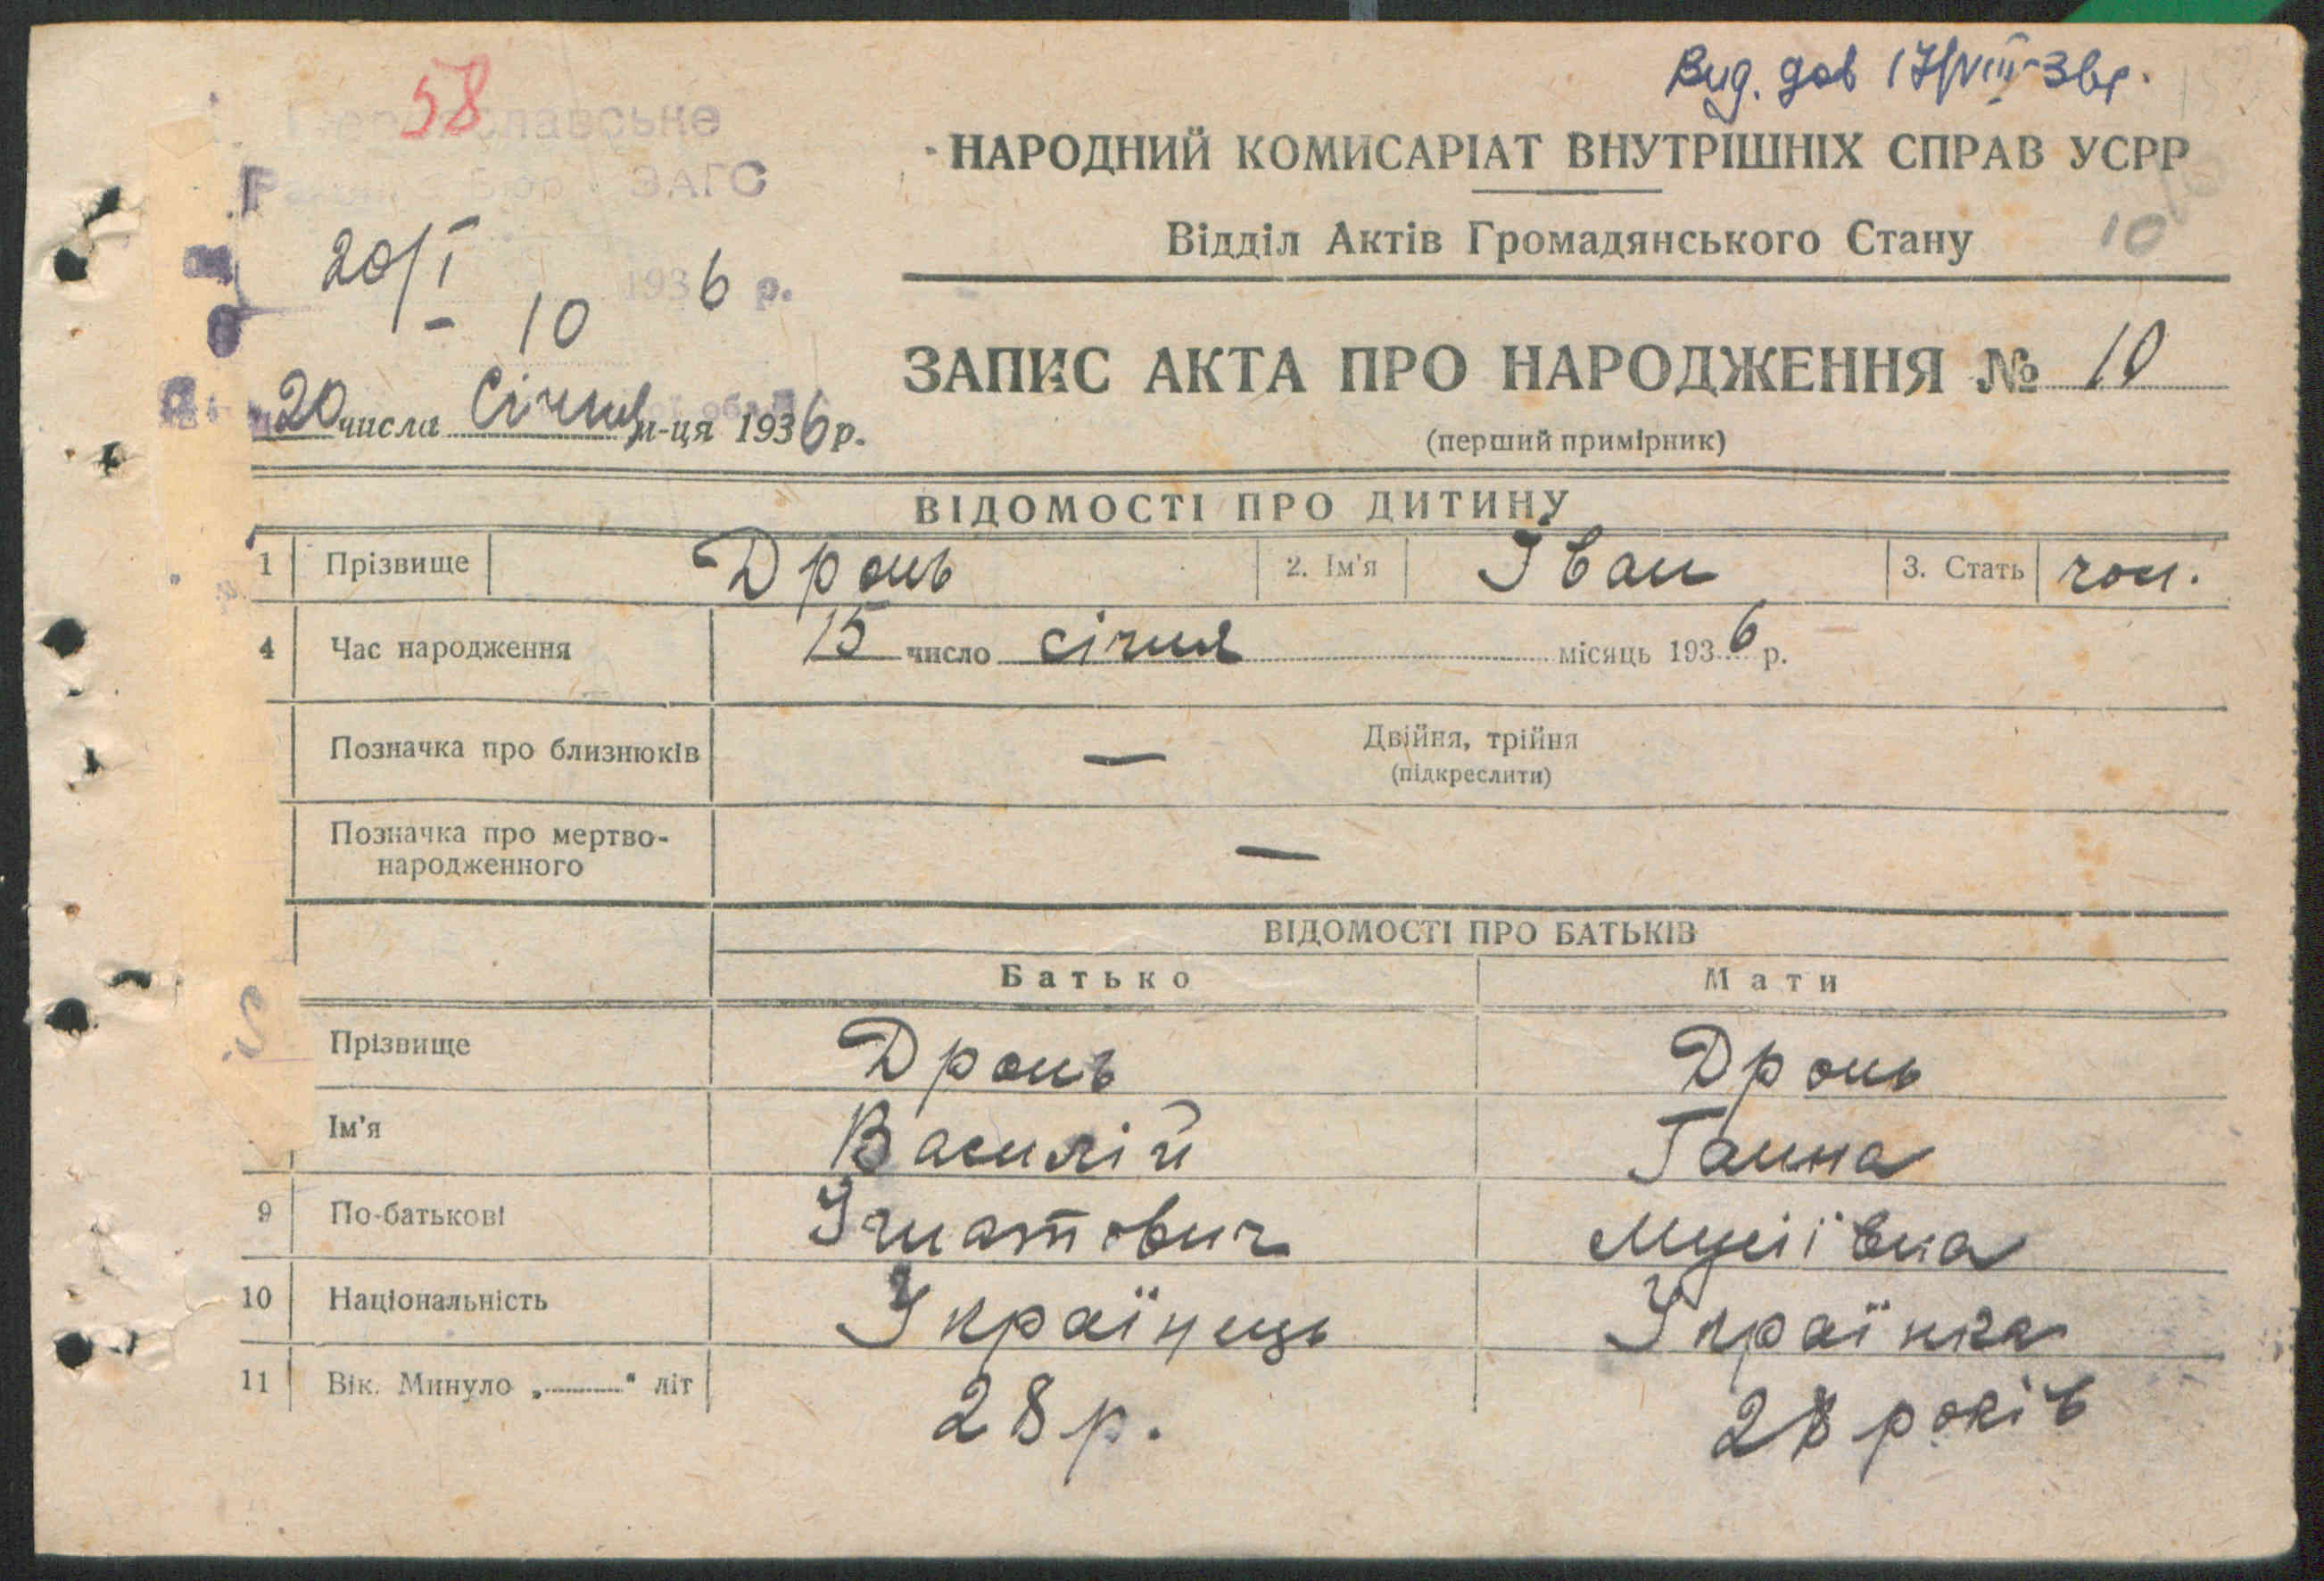 58
Вид. дов 17/VIII-36р.
ЗАГС
НАРОДНИЙ КОМИСАРІАТ ВНУТРІШНІХ СПРАВ УСРР
Відділ Актів Громадянського Стану 10
20/I 1936 р.
10
ЗАПИС АКТА ПРО НАРОДЖЕННЯ № 10
20 числа Січня м-ця 1936 р.
(перший примірник)
ВІДОМОСТІ ПРО ДИТИНУ
1 Прізвище Дронь 2. Ім'я Іван 3. Стать чол.
4 Час народження 15 число січня місяць 1936 р.
Позначка про близнюків — Двійня, трійня
(підкреслити)
Позначка про мертво-
народженного —
ВІДОМОСТІ ПРО БАТЬКІВ
Батько Мати
Прізвище Дронь Дронь
Ім'я Василій Ганна
9 По-батькові Ігнатович Мусіївна
10 Національність Українець Українка
11 Вік. Минуло „ “ літ 28 р. 28 років